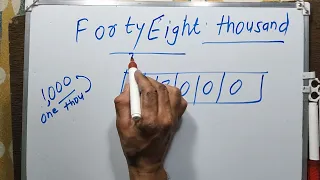 FortyEight thousand
1,000
one thou
0 0 0